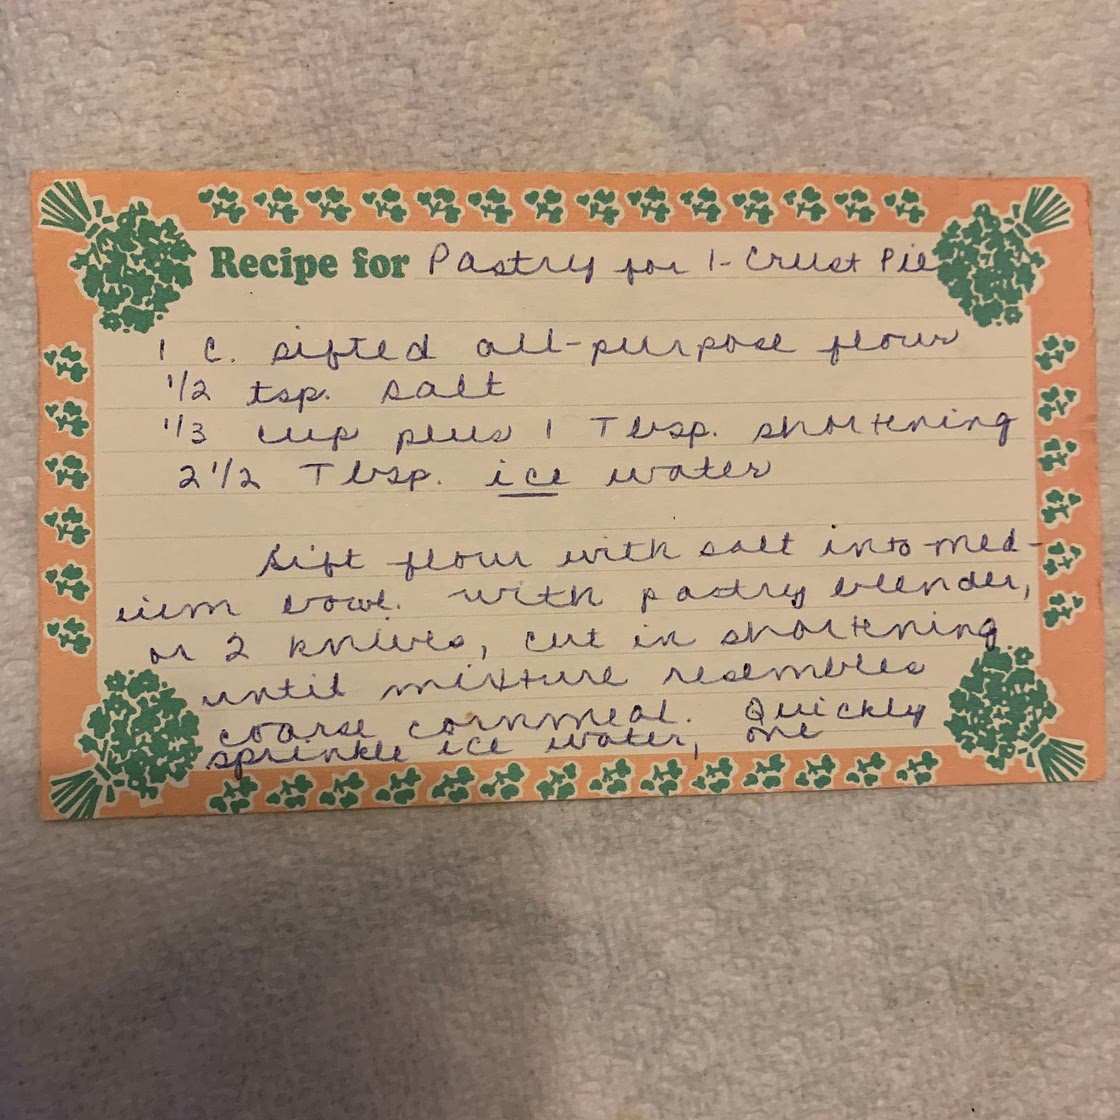 Recipe for Pastry for 1-Crust Pie
1 C. sifted all-purpose flour
1/2 tsp. salt
1/3 cup plus 1 Tbsp. shortening
2 1/2 Tbsp. ice water
Sift flour with salt into med-
ium bowl. With pastry blender,
or 2 knives, cut in shortening
until mixture resembles
coarse cornmeal. Quickly
sprinkle ice water, one